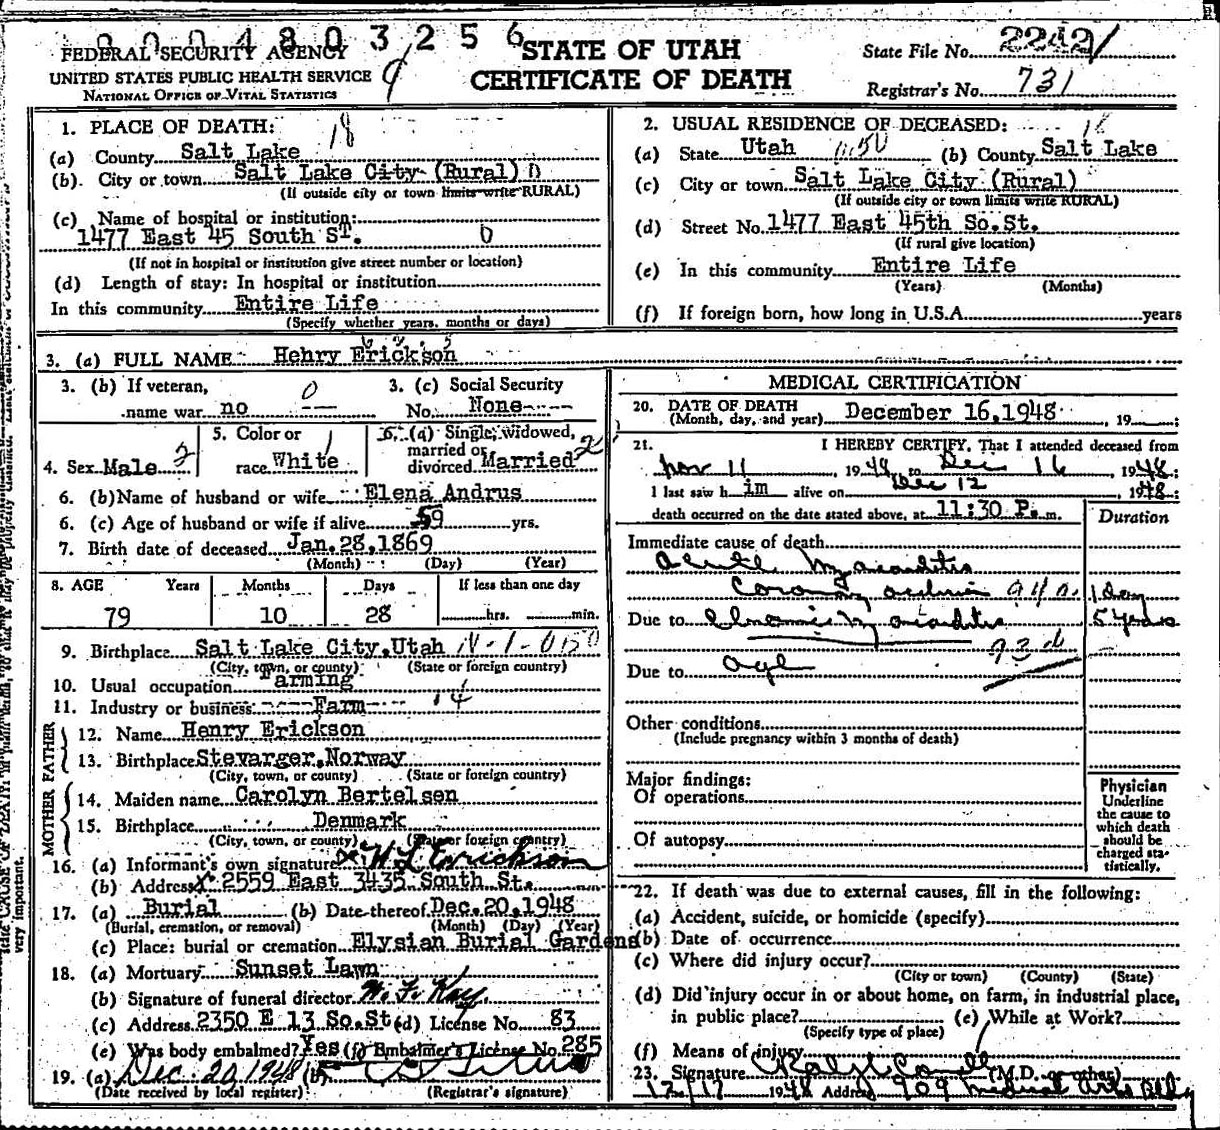 0004803256
FEDERAL SECURITY AGENCY
UNITED STATES PUBLIC HEALTH SERVICE 9
NATIONAL OFFICE OF VITAL STATISTICS
STATE OF UTAH
CERTIFICATE OF DEATH
State File No. 2242
Registrar's No. 731
1. PLACE OF DEATH: 18
(a) County Salt Lake
(b) City or town Salt Lake City (Rural) 0
(If outside city or town limits write RURAL)
(c) Name of hospital or institution:
1477 East 45 South ST. 0
(If not in hospital or institution give street number or location)
(d) Length of stay: In hospital or institution
In this community Entire Life
(Specify whether years, months or days)
2. USUAL RESIDENCE OF DECEASED: 18
(a) State Utah (b) County Salt Lake
(c) City or town Salt Lake City (Rural)
(If outside city or town limits write RURAL)
(d) Street No. 1477 East 45th So.St.
(If rural give location)
(e) In this community Entire Life
(Years) (Months)
(f) If foreign born, how long in U.S.A. years
3. (a) FULL NAME Henry Erickson
3. (b) If veteran, 0
name war no
3. (c) Social Security
No. None
4. Sex Male 2
5. Color or
race White 1
6. (a) Single, widowed,
married or
divorced Married 2
6. (b) Name of husband or wife Elena Andrus
6. (c) Age of husband or wife if alive 59 yrs.
7. Birth date of deceased Jan.28,1869
(Month) (Day) (Year)
8. AGE Years Months Days If less than one day
79 10 28 hrs. min.
9. Birthplace Salt Lake City,Utah
(City, town, or county) (State or foreign country)
10. Usual occupation Farming
11. Industry or business Farm 14
FATHER
12. Name Henry Erickson
13. Birthplace Stevarger,Norway
(City, town, or county) (State or foreign country)
MOTHER
14. Maiden name Carolyn Bertelsen
15. Birthplace Denmark
(City, town, or county) (State or foreign country)
16. (a) Informant's own signature x H L Erickson
(b) Address x 2559 East 3435 South St.
17. (a) Burial (b) Date thereof Dec.20,1948
(Burial, cremation, or removal) (Month) (Day) (Year)
(c) Place: burial or cremation Elysian Burial Gardens
18. (a) Mortuary Sunset Lawn
(b) Signature of funeral director W. F. Kay
(c) Address 2350 E 13 So.St. (d) License No. 83
(e) Was body embalmed? Yes (f) Embalmer's License No. 285
19. (a) Dec. 20 1948 (b)
(Date received by local register) (Registrar's signature)
MEDICAL CERTIFICATION
20. DATE OF DEATH
(Month, day, and year) December 16,1948 , 19 ;
21. I HEREBY CERTIFY, That I attended deceased from
Nov 11 , 1948 to Dec 16 1948;
I last saw h im alive on Dec 12 , 1948;
death occurred on the date stated above, at 11:30 P. m.
Duration
Immediate cause of death
Acute Myocarditis
Coronary occlusion 94a. 1 Day
Due to Chronic Myocarditis 5 years
93d
Due to age
Other conditions
(Include pregnancy within 3 months of death)
Major findings:
Of operations
Of autopsy
Physician
Underline
the cause to
which death
should be
charged sta-
tistically.
22. If death was due to external causes, fill in the following:
(a) Accident, suicide, or homicide (specify)
(b) Date of occurrence
(c) Where did injury occur?
(City or town) (County) (State)
(d) Did injury occur in or about home, on farm, in industrial place,
in public place? (e) While at Work?
(Specify type of place)
(f) Means of injury
23. Signature (M.D. or other)
12/17 1948 Address 909 Medical Arts Bldg
very important.